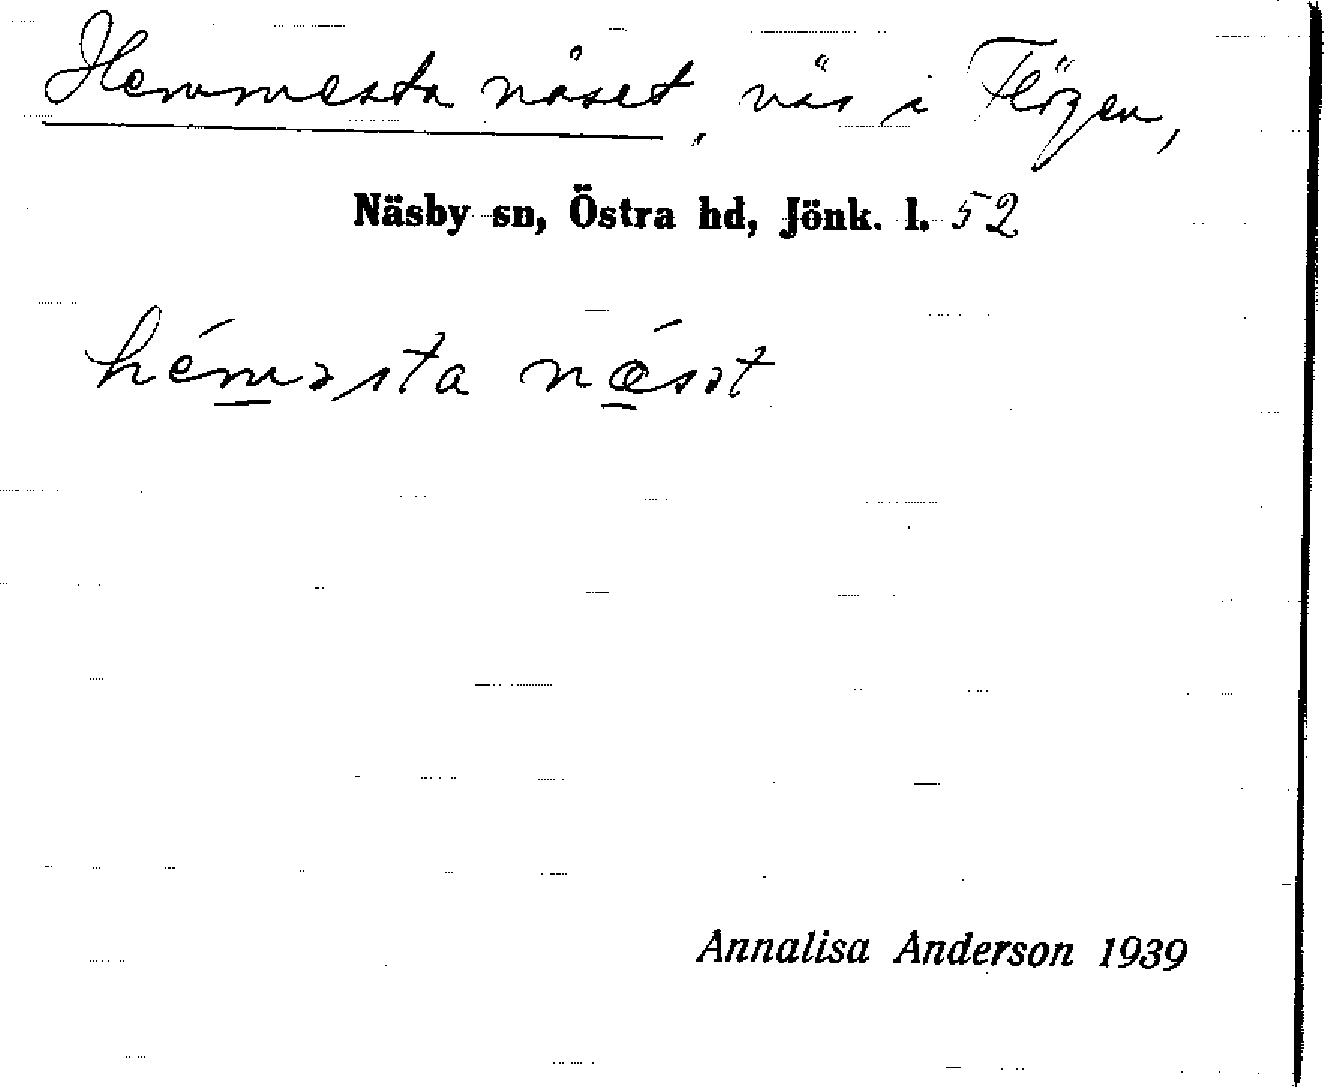 Hemmesta näset, näs i Flögen,
Näsby sn, Östra hd, Jönk. l. 52
héməsta nǽsət
Annalisa Anderson 1939